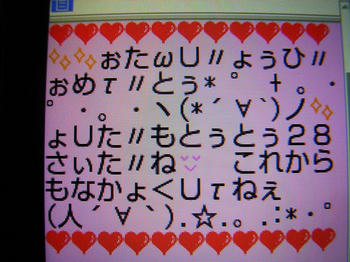 ❤❤❤❤❤❤❤❤❤❤❤
✨ぉたωU〃ょぅひ〃
ぉめτ〃とぅ*゜✝。・
゜・。・ヽ(*´∀`)ノ✨
ょUた〃もとぅとぅ28
さぃた〃ね これから
もなかょ<Uτねぇ
(人´∀`).☆.。.:*・゜
❤❤❤❤❤❤❤❤❤❤❤